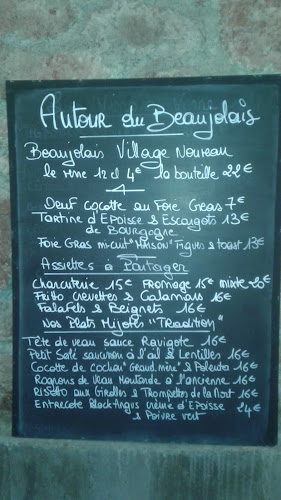 Autour du Beaujolais
Beaujolais Village Nouveau
le verre 12 cl 4€ la bouteille 22€
Oeuf cocotte au Foie Gras 7€
Tartine d'Epoisse & Escargots 13€
de Bourgogne
Foie Gras mi-cuit "MAISON" Figues & toast 13€
Assiettes à Partager
Charcuterie 15€ Fromage 15€ mixte 20€
Fritto Crevettes & Calamars 16€
Falafels & Beignets 16€
Nos Plats Mijotés "Tradition"
Tête de veau sauce Ravigote 16€
Petit Salé saucisson à l'ail & Lentilles 16€
Cocotte de cochon "Grand mère" & Polenta 16€
Rognons de Veau Moutarde à l'ancienne 16€
Risotto aux Girolles & Trompettes de la Mort 16€
Entrecôte Black Angus crème d'Epoisse 24€
& Poivre vert